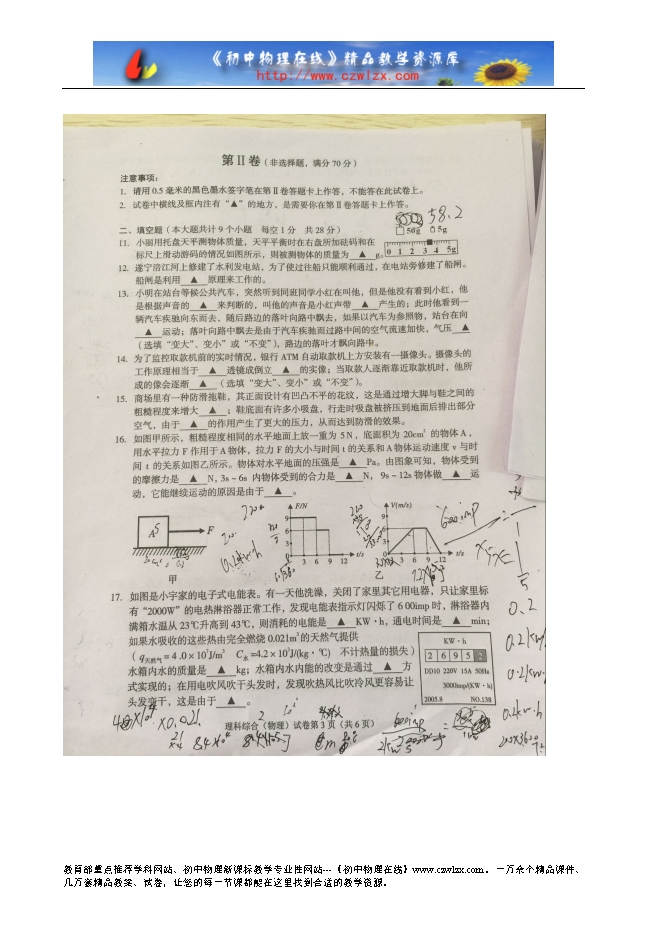 《初中物理在线》精品教学资源库
http://www.czwlzx.com
第Ⅱ卷(非选择题，满分70分)
注意事项：
1. 请用0.5毫米的黑色墨水签字笔在第Ⅱ卷答题卡上作答，不能答在此试卷上。
2. 试卷中横线及框内注有“▲”的地方，是需要你在第Ⅱ卷答题卡上作答。
58.2
二、填空题(本大题共计9个小题 每空1分 共28分)
50g 5g
11. 小丽用托盘天平测物体质量，天平平衡时在右盘所加砝码和在
标尺上滑动游码的情况如图所示，则被测物体的质量为 ▲ g。
0 1 2 3 4 5g
12. 遂宁涪江河上修建了水利发电站，为了使过往船只能顺利通过，在电站旁修建了船闸。
船闸是利用 ▲ 原理来工作的。
13. 小明在站台等候公共汽车，突然听到同班同学小红在叫他，但是他没有看到小红，他
是根据声音的 ▲ 来判断的，叫他的声音是小红声带 ▲ 产生的；此时他看到一
辆汽车疾驰向东而去，随后路边的落叶向路中飘去，如果以汽车为参照物，站台在向
▲ 运动；落叶向路中飘去是由于汽车疾驰而过路中间的空气流速加快，气压 ▲
(选填“变大”、变小”或“不变”)，路边的落叶才飘向路中。
14. 为了监控取款机前的实时情况，银行ATM自动取款机上方安装有一摄像头。摄像头的
工作原理相当于 ▲ 透镜成倒立 ▲ 的实像；当取款人逐渐靠近取款机时，他所
成的像会逐渐 ▲ (选填“变大”、变小”或“不变”)。
15. 商场里有一种防滑拖鞋，其正面设计有凹凸不平的花纹，这是通过增大脚与鞋之间的
粗糙程度来增大 ▲ ；鞋底面有许多小吸盘，行走时吸盘被挤压到地面后排出部分
空气，由于 ▲ 的作用产生了更大的压力，从而达到防滑的效果。
16. 如图甲所示，粗糙程度相同的水平地面上放一重为5N，底面积为20cm² 的物体A，
用水平拉力F作用于A物体，拉力F的大小与时间t的关系和A物体运动速度v与时
间t的关系如图乙所示。物体对水平地面的压强是 ▲ Pa。由图象可知，物体受到
的摩擦力是 ▲ N，3s~6s 内物体受到的合力是 ▲ N， 9s~12s 物体做 ▲ 运
动，它能继续运动的原因是由于 ▲ 。
A 5 F
F/N
9
6
3
0 3 6 9 12 t/s
V(m/s)
9
6
3
0 3 6 9 12 t/s
甲 乙
600imp
17. 如图是小宇家的电子式电能表。有一天他洗澡，关闭了家里其它用电器，只让家里标
有“2000W”的电热淋浴器正常工作，发现电能表指示灯闪烁了6 00imp时，淋浴器内
满箱水温从23℃升高到43℃，则消耗的电能是 ▲ KW·h，通电时间是 ▲ min；
如果水吸收的这些热由完全燃烧0.021m³的天然气提供
(q天然气=4.0×10⁷J/m³ C水=4.2×10³J/(kg·℃) 不计热量的损失)
水箱内水的质量是 ▲ kg；水箱内水内能的改变是通过 ▲ 方
式实现的；在用电吹风吹干头发时，发现吹热风比吹冷风更容易让
头发变干，这是由于 ▲ 。
KW·h
2 6 9 5 2
DD10 220V 15A 50Hz
3000imp/(KW·h)
2005.8 NO.138
0.2
理科综合(物理)试卷第3页(共6页)
教育部重点推荐学科网站、初中物理新课标教学专业性网站---《初中物理在线》www.czwlzx.com。一万余个精品课件、
几万套精品教案、试卷，让您的每一节课都能在这里找到合适的教学资源。